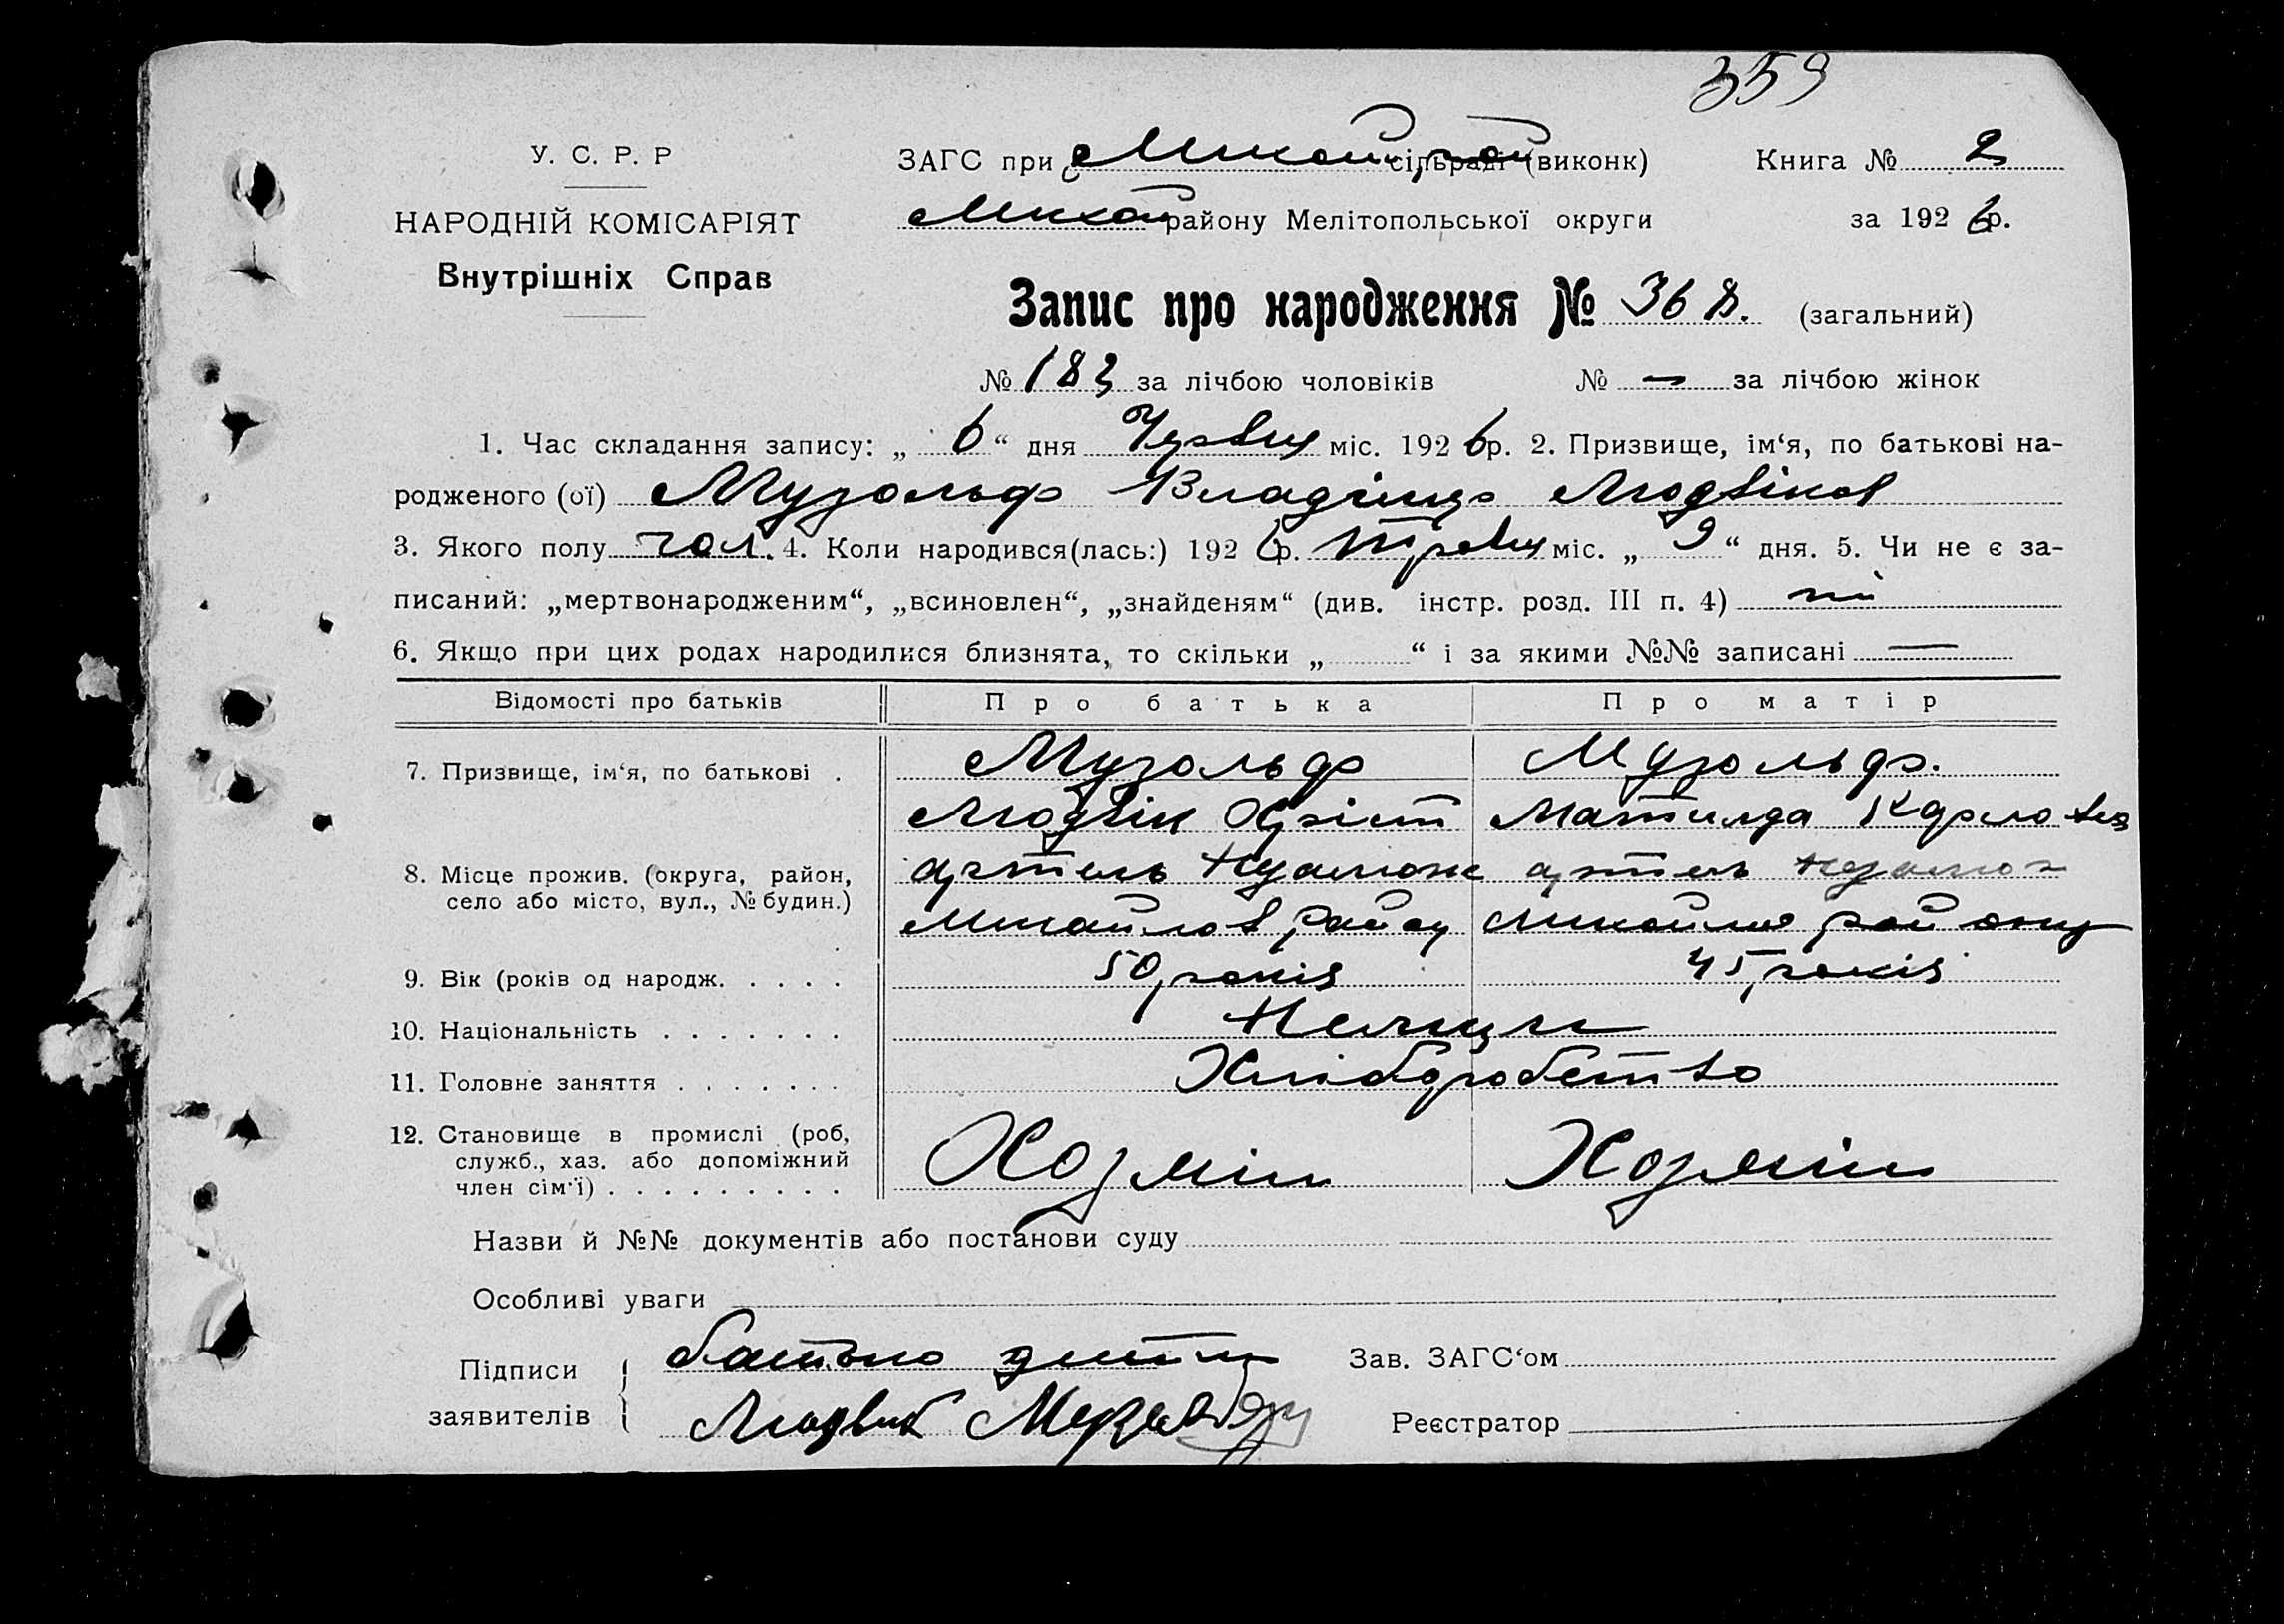 359
У. С. Р. Р
ЗАГС при Михай сільраді (виконк) Книга № 2
НАРОДНІЙ КОМІСАРІЯТ
Михай району Мелітопольської округи за 1926 р.
Внутрішніх Справ
Запис про народження № 368. (загальний)
№ 183 за лічбою чоловіків № — за лічбою жінок
1. Час складання запису: „ 6 “ дня Червня міс. 1926 р. 2. Призвище, ім‘я, по батькові на-
родженого (ої) Музольф Людвіков
3. Якого полу чол. 4. Коли народився(лась:) 1926 р. Травня міс. „ 9 “ дня. 5. Чи не є за-
писаний: „мертвонародженим“, „всиновлен“, „знайденям“ (див. інстр. розд. III п. 4) ні
6. Якщо при цих родах народилися близнята, то скільки „ “ і за якими №№ записані —
Відомості про батьків Про батька Про матір
7. Призвище, ім‘я, по батькові . Музольф Музольф.
Людвік Хріст Матилда Карловна
8. Місце прожив. (округа, район, артель артель
село або місто, вул., № будин.) Михайлов району Михайлов району
9. Вік (років од народж. . . . . 50 років 45 років
10. Національність . . . . . . . Немци
11. Головне заняття . . . . . . . Хліборобство
12. Становище в промислі (роб,
служб., хаз. або допоміжний
член сім‘ї) . . . . . . . . .
Назви й №№ документів або постанови суду
Особливі уваги
Підписи батько дитини Зав. ЗАГС‘ом
заявителів Людвиг Реєстратор